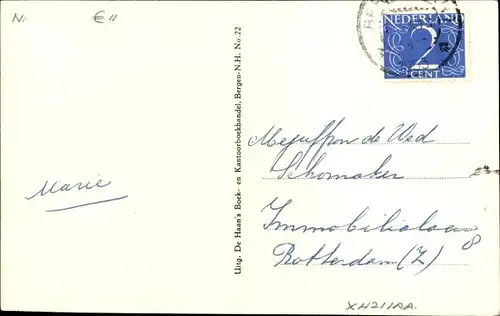 Nr €11
NEDERLAND
2
CENT
Uitg. De Haan's Boek- en Kantoorboekhandel, Bergen-N.H. No. 22
Marie
de Wed
Schomaker
Immobilialaan
8
Rotterdam (Z)
XH211AA.